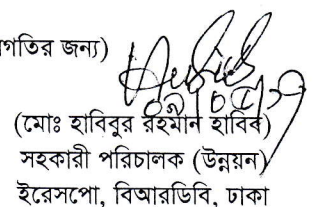 গতির জন্য)
(মোঃ হাবিবুর রহমান হাবিব)
সহকারী পরিচালক (উন্নয়ন)
ইরেসপো, বিআরডিবি, ঢাকা